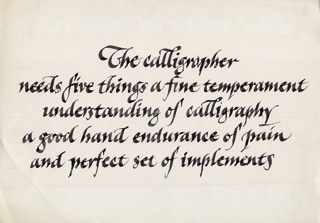 The calligrapher
needs five things a fine temperament
understanding of calligraphy
a good hand endurance of pain
and perfect set of implements